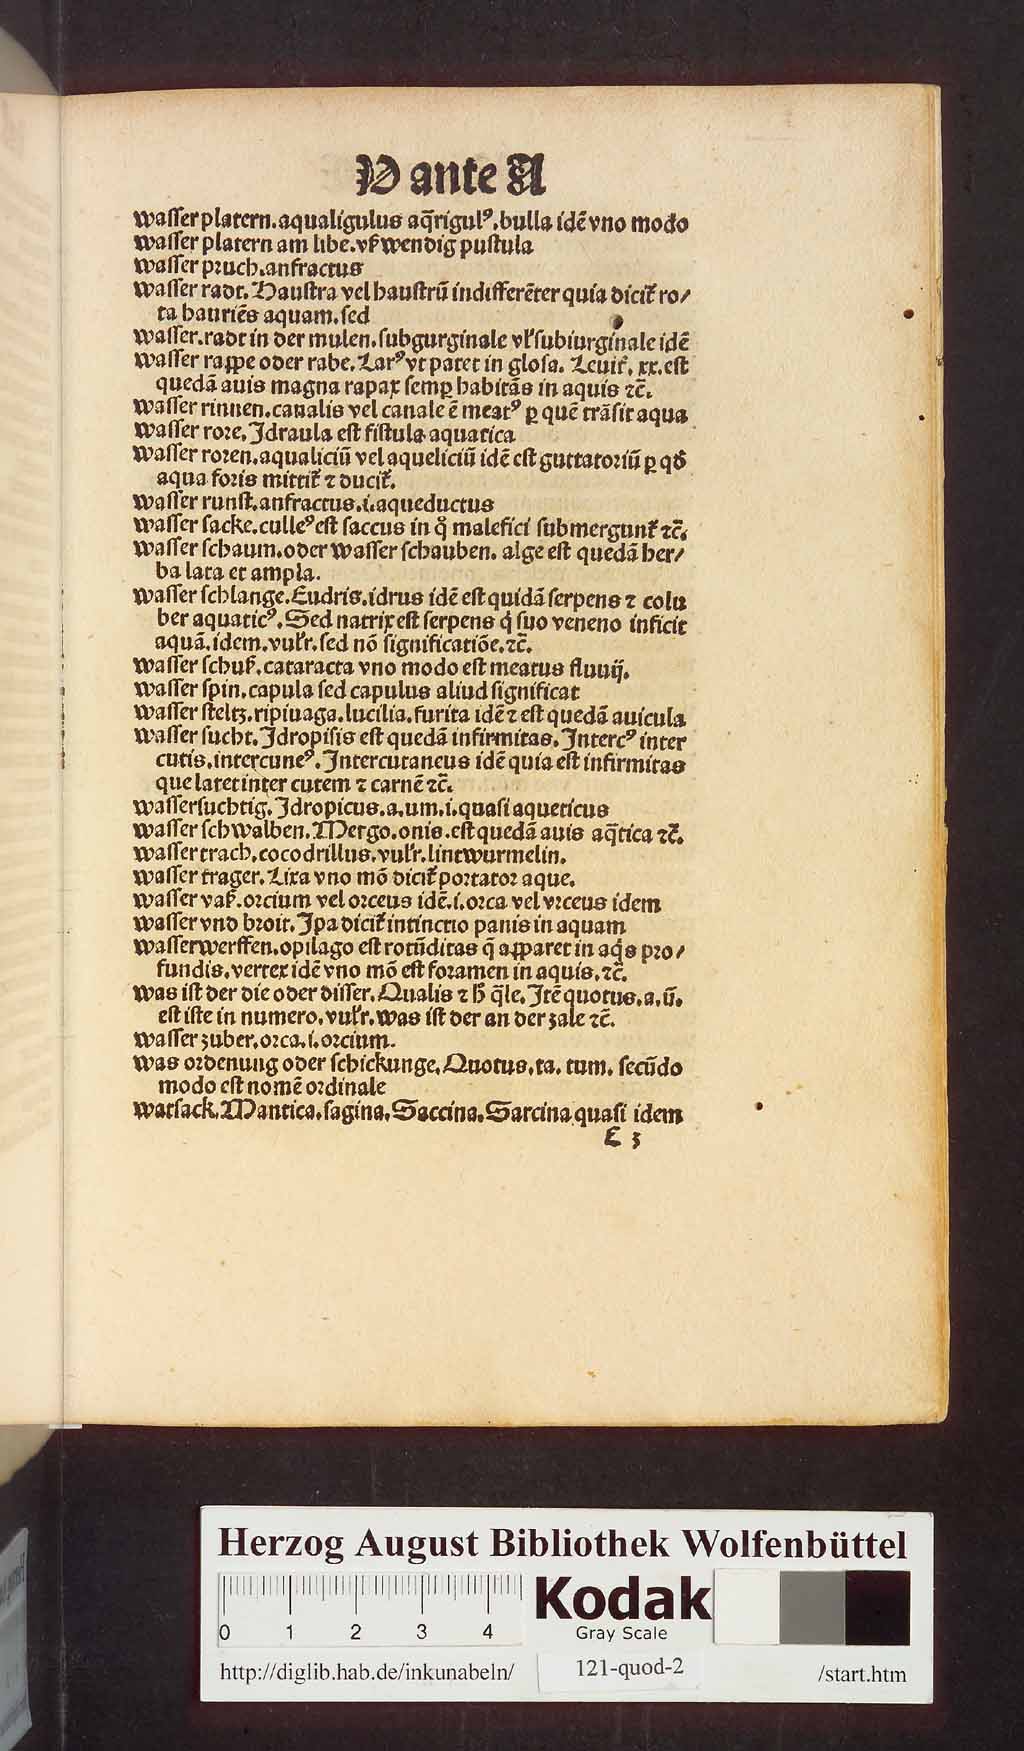 V ante A
wasser platern. aqualigulus aq̄rigulꝰ. bulla idē vno modo
wasser platern am libe. vſswendig pustula
wasser pruch. anfractus
wasser radt. Haustra vel haustrū indifferēter quia dicit̃ ro/
ta hauriēs aquam. sed
wasser. radt in der mulen. subgurginale vl̃ subiurginale idē
wasser rappe oder rabe. Larꝰ vt patet in glosa. Leuit̃. xx. est
quedā auis magna rapax semꝑ habitās in aquis ⁊c̄.
wasser rinnen. canalis vel canale ē meatꝰ ꝑ quē trāsit aqua
wasser rore. Jdraula est fistula aquatica
wasser roren. aqualiciū vel aqueliciū idē est guttatoriū ꝑ qḋ
aqua foris mittit̃ ⁊ ducit̃.
wasser runst. anfractus. i. aqueductus
wasser sacke. culleꝰ est saccus in q̊ malefici submergunt̃ ⁊c̄.
wasser schaum. oder wasser schauben. alge est quedā her/
ba lata et ampla.
wasser schlange. Eudris. idrus idē est quidā serpens ⁊ colu
ber aquaticꝰ. Sed natrix est serpens q̇ suo veneno inficit
aquā. idem. vul̃r. sed nō significatiōe. ⁊c̄.
wasser schuſs. cataracta vno modo est meatus fluuij.
wasser spin. capula sed capulus aliud significat
wasser steltz. ripiuaga. lucilia. furita idē ⁊ est quedā auicula
wasser sucht. Jdropisis est quedā infirmitas. Jntercꝰ inter
cutis. intercuneꝰ. Jntercutaneus idē quia est infirmitas
que latet inter cutem ⁊ carnē ⁊c̄.
wassersuchtig. Jdropicus. a. um. i. quasi aqueticus
wasser schwalben. Mergo. onis. est quedā auis aq̄tica ⁊c̄.
wasser trach. cocodrillus. vul̃r. lintwurmelin.
wasser trager. Lixa vno mō dicit̃ portator aque.
wasser vaſs. orcium vel orceus idē. i. orca vel vrceus idem
wasser vnd broit. Jpa dicit̃ intinctio panis in aquam
wasserwerffen. opilago est rotūditas q̄ apparet in aq̇s pro/
fundis. vertex idē vno mō est foramen in aquis. ⁊c̄.
was ist der die oder disser. Qualis ⁊ h̄ q̄le. Jtē quotus. a. ū.
est iste in numero. vul̃r. was ist der an der zale ⁊c̄.
wasser zuber. orca. i. orcium.
was ordenung oder schickunge. Quotus. ta. tum. secūdo
modo est nomē ordinale
watsack. Mantica. sagina. Saccina. Sarcina quasi idem
E 3
Herzog August Bibliothek Wolfenbüttel
0 1 2 3 4
Kodak
Gray Scale
http://diglib.hab.de/inkunabeln/ 121-quod-2 /start.htm